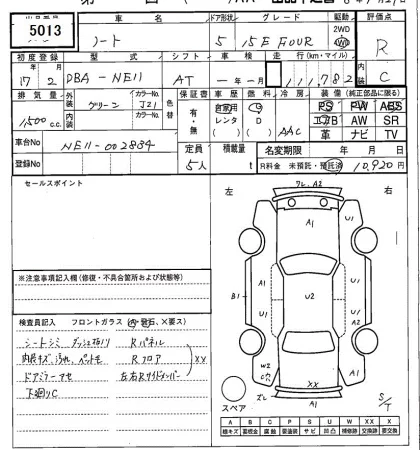 5013
車名 ドア形状 グレード 駆動 評価点
ノート 5 15E FOUR 2WD 4WD R
初度登録 型式 シフト 車検 走行(km・マイル) 内装
17年2月 DBA-NE11 AT 年 月 111,782 C
排気量 外装 カラーNo. 色替 保証書 車歴 燃料 冷房 装備(純正部品に限る)
1,500cc グリーン J21 有・無 自家用 G AAC PS PW ABS
内装 カラーNo. レンタ D エアB AW SR
( ) ( ) 革 ナビ TV
車台No NE11-002884 定員 積載量 名変期限 年 月 日
登録No 5人 t R料金 未預託・預託済 10,920円
セールスポイント
左 右
ワレ、A2
A1
U1 U1
B1 U2
U1
W2
A1 XX A1
ズレ A1
S/T
スペア
※注意事項記入欄(修復・不具合箇所および状態等)
検査員記入 フロントガラス(A・飛石、×要ス)
シートシミ Rパネル
内装キズ、汚れ、ペットモ Rフロア XX
ドアミラーキセ 左右Rサイドメンバー
下廻りC
A B C P S U W X XX
線キズ 要板金 腐蝕 要塗装 サビ 凹凸 補修跡 要交換 交換跡